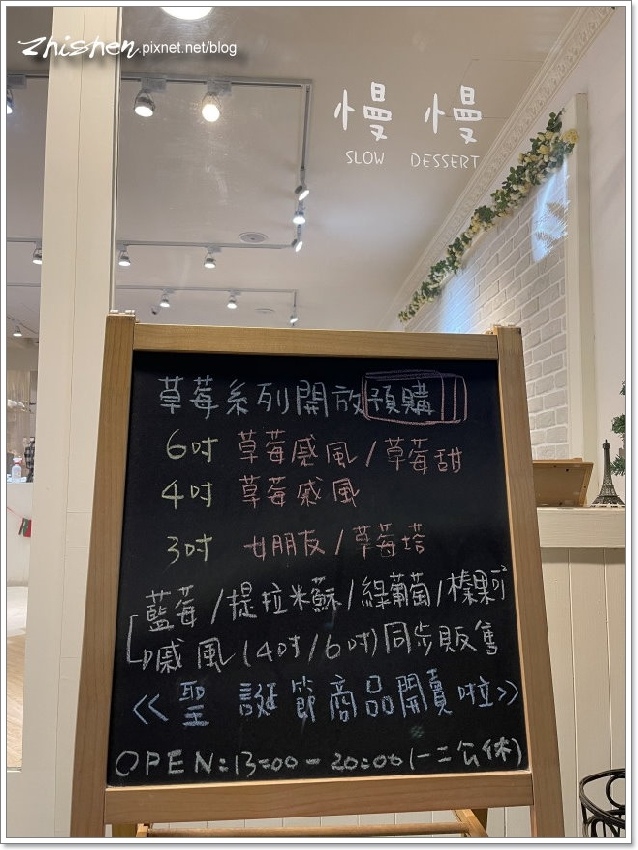 Zhishen.pixnet.net/blog
慢 慢
SLOW DESSERT
草莓系列開放預購
6吋 草莓感風/草莓甜
4吋 草莓戚風
3吋 女朋友/草莓塔
藍莓/提拉米蘇/綠葡萄/榛果可
戚風(4吋/6吋)同步販售
<<聖誕節商品開賣啦>>
OPEN:13:00-20:00(一二公休)